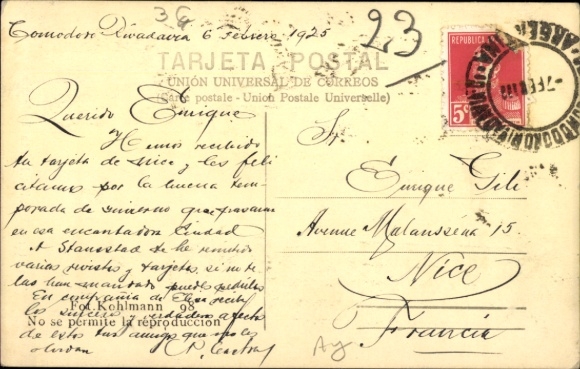 36
Comodoro Rivadavia 6 Febrero 1925
23
TARJETA POSTAL
UNIÓN UNIVERSAL DE CORREOS
(Carte postale - Union Postale Universelle)
REPUBLICA
5c
7 FEB
COMODORO RIVADAVIA
ARGENTINA
Querido Enrique
Hemos recibido
tu tarjeta de Nice y les feli
citamos por la buena tem-
porada de invierno que pasaran
en esa encantadora Ciudad
A Stanostad se le
varias revistas y tarjetas, si no te
las han mandado puedes pedirlas
En compañia de Elisa recibe
los sinceros y verdaderos afectos
de estos tus amigos que no los
olvidan
Fot. Kohlmann 98
No se permite la reproducción
Sr
Enrique Gili
Avenue Malaussena 15.
Nice
Francia